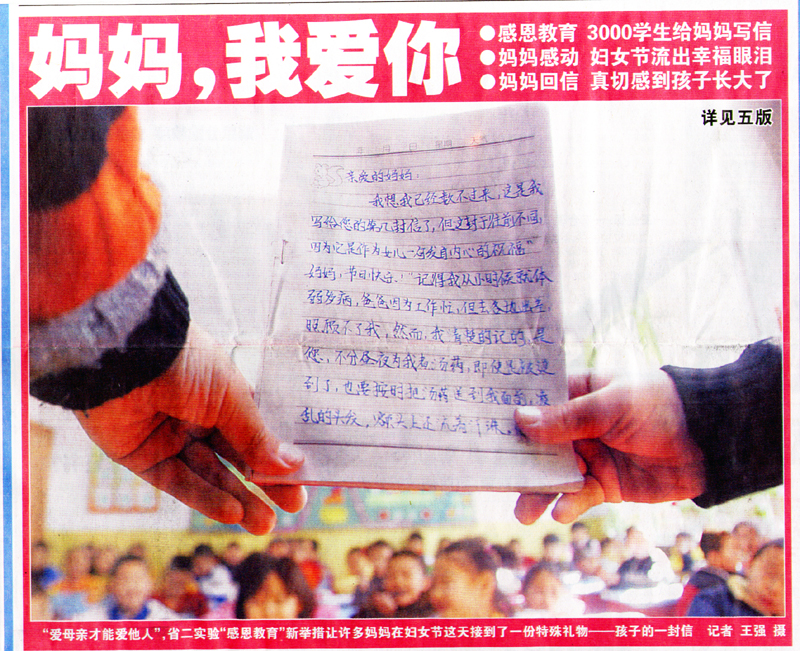 妈妈，我爱你
●感恩教育 3000学生给妈妈写信
●妈妈感动 妇女节流出幸福眼泪
●妈妈回信 真切感到孩子长大了
详见五版
亲爱的妈妈：
我想我已经数不过来，这是我
写给您的第几封信了，但这封于往前不同，
因为它是作为女儿一份发自内心的祝福“
妈妈，节日快乐！”记得我从小时候就体
弱多病，爸爸因为工作忙，但去各地出差，
照顾不了我，然而，我清楚的记的，是
您，不分昼夜为我煮汤药，即使
到了，也要按时把汤药送到我面前，凌
乱的头发，额头上还流着汗珠。
“爱母亲才能爱他人”，省二实验“感恩教育”新举措让许多妈妈在妇女节这天接到了一份特殊礼物——孩子的一封信 记者 王强 摄